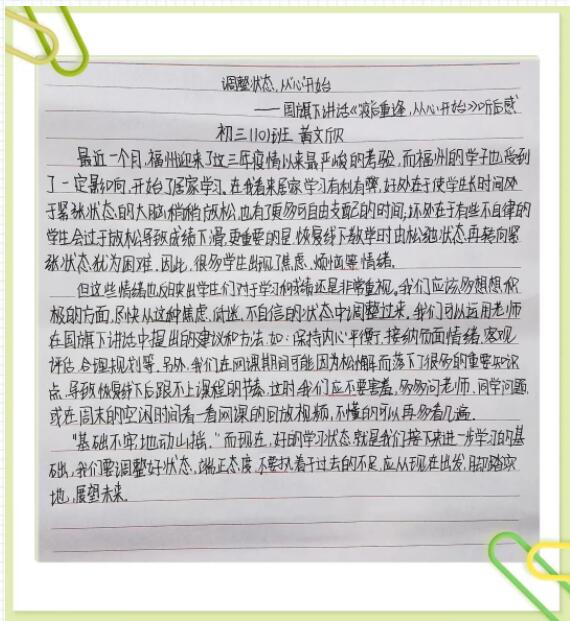 调整状态,从心开始
——国旗下讲话《“疫”后重逢,从心开始》听后感
初三(10)班 黄文欣
最近一个月,福州迎来了这三年疫情以来最严峻的考验,而福州的学子也受到
了一定影响,开始了居家学习。在我看来居家学习有利有弊,好处在于使学生长时间处
于紧张状态的大脑稍稍放松,也有了更多可自由支配的时间;坏处在于有些不自律的
学生会过于放松导致成绩下滑,更重要的是,恢复线下教学时由松弛状态再转向紧
张状态犹为困难,因此,很多学生出现了焦虑、烦恼等情绪。
但这些情绪也反映出学生们对于学习和成绩还是非常重视。我们应该多想想积
极的方面,尽快从这种焦虑、低迷、不自信的状态中调整过来。我们可以运用老师
在国旗下讲话中提出的建议和方法,如:保持内心平衡、接纳负面情绪、客观
评估、合理规划等。另外,我们在网课期间可能因为松懈而落下了很多的重要知识
点,导致恢复线下后跟不上课程的节奏,这时我们应不要害羞,多多问老师、同学问题,
或在周末的空闲时间看一看网课的回放视频,不懂的可以再多看几遍。
“基础不牢,地动山摇。”而现在,好的学习状态就是我们接下来进一步学习的基
础,我们要调整好状态,端正态度,不要执着于过去的不足,应从现在出发,脚踏实
地,展望未来。